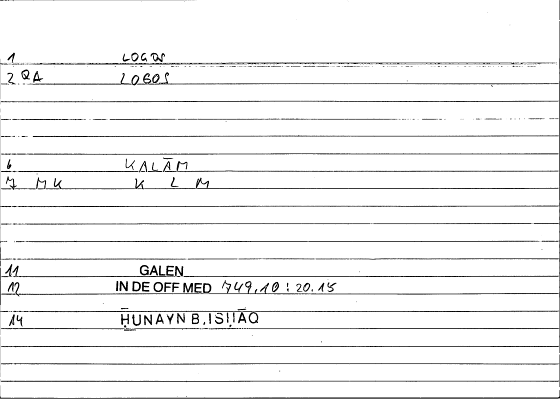 1 LOGOS
2 QA LOGOS
6 KALĀM
7 MK K L M
11 GALEN
12 IN DE OFF MED 749,10 : 20.15
14 ḤUNAYN B. ISḤĀQ